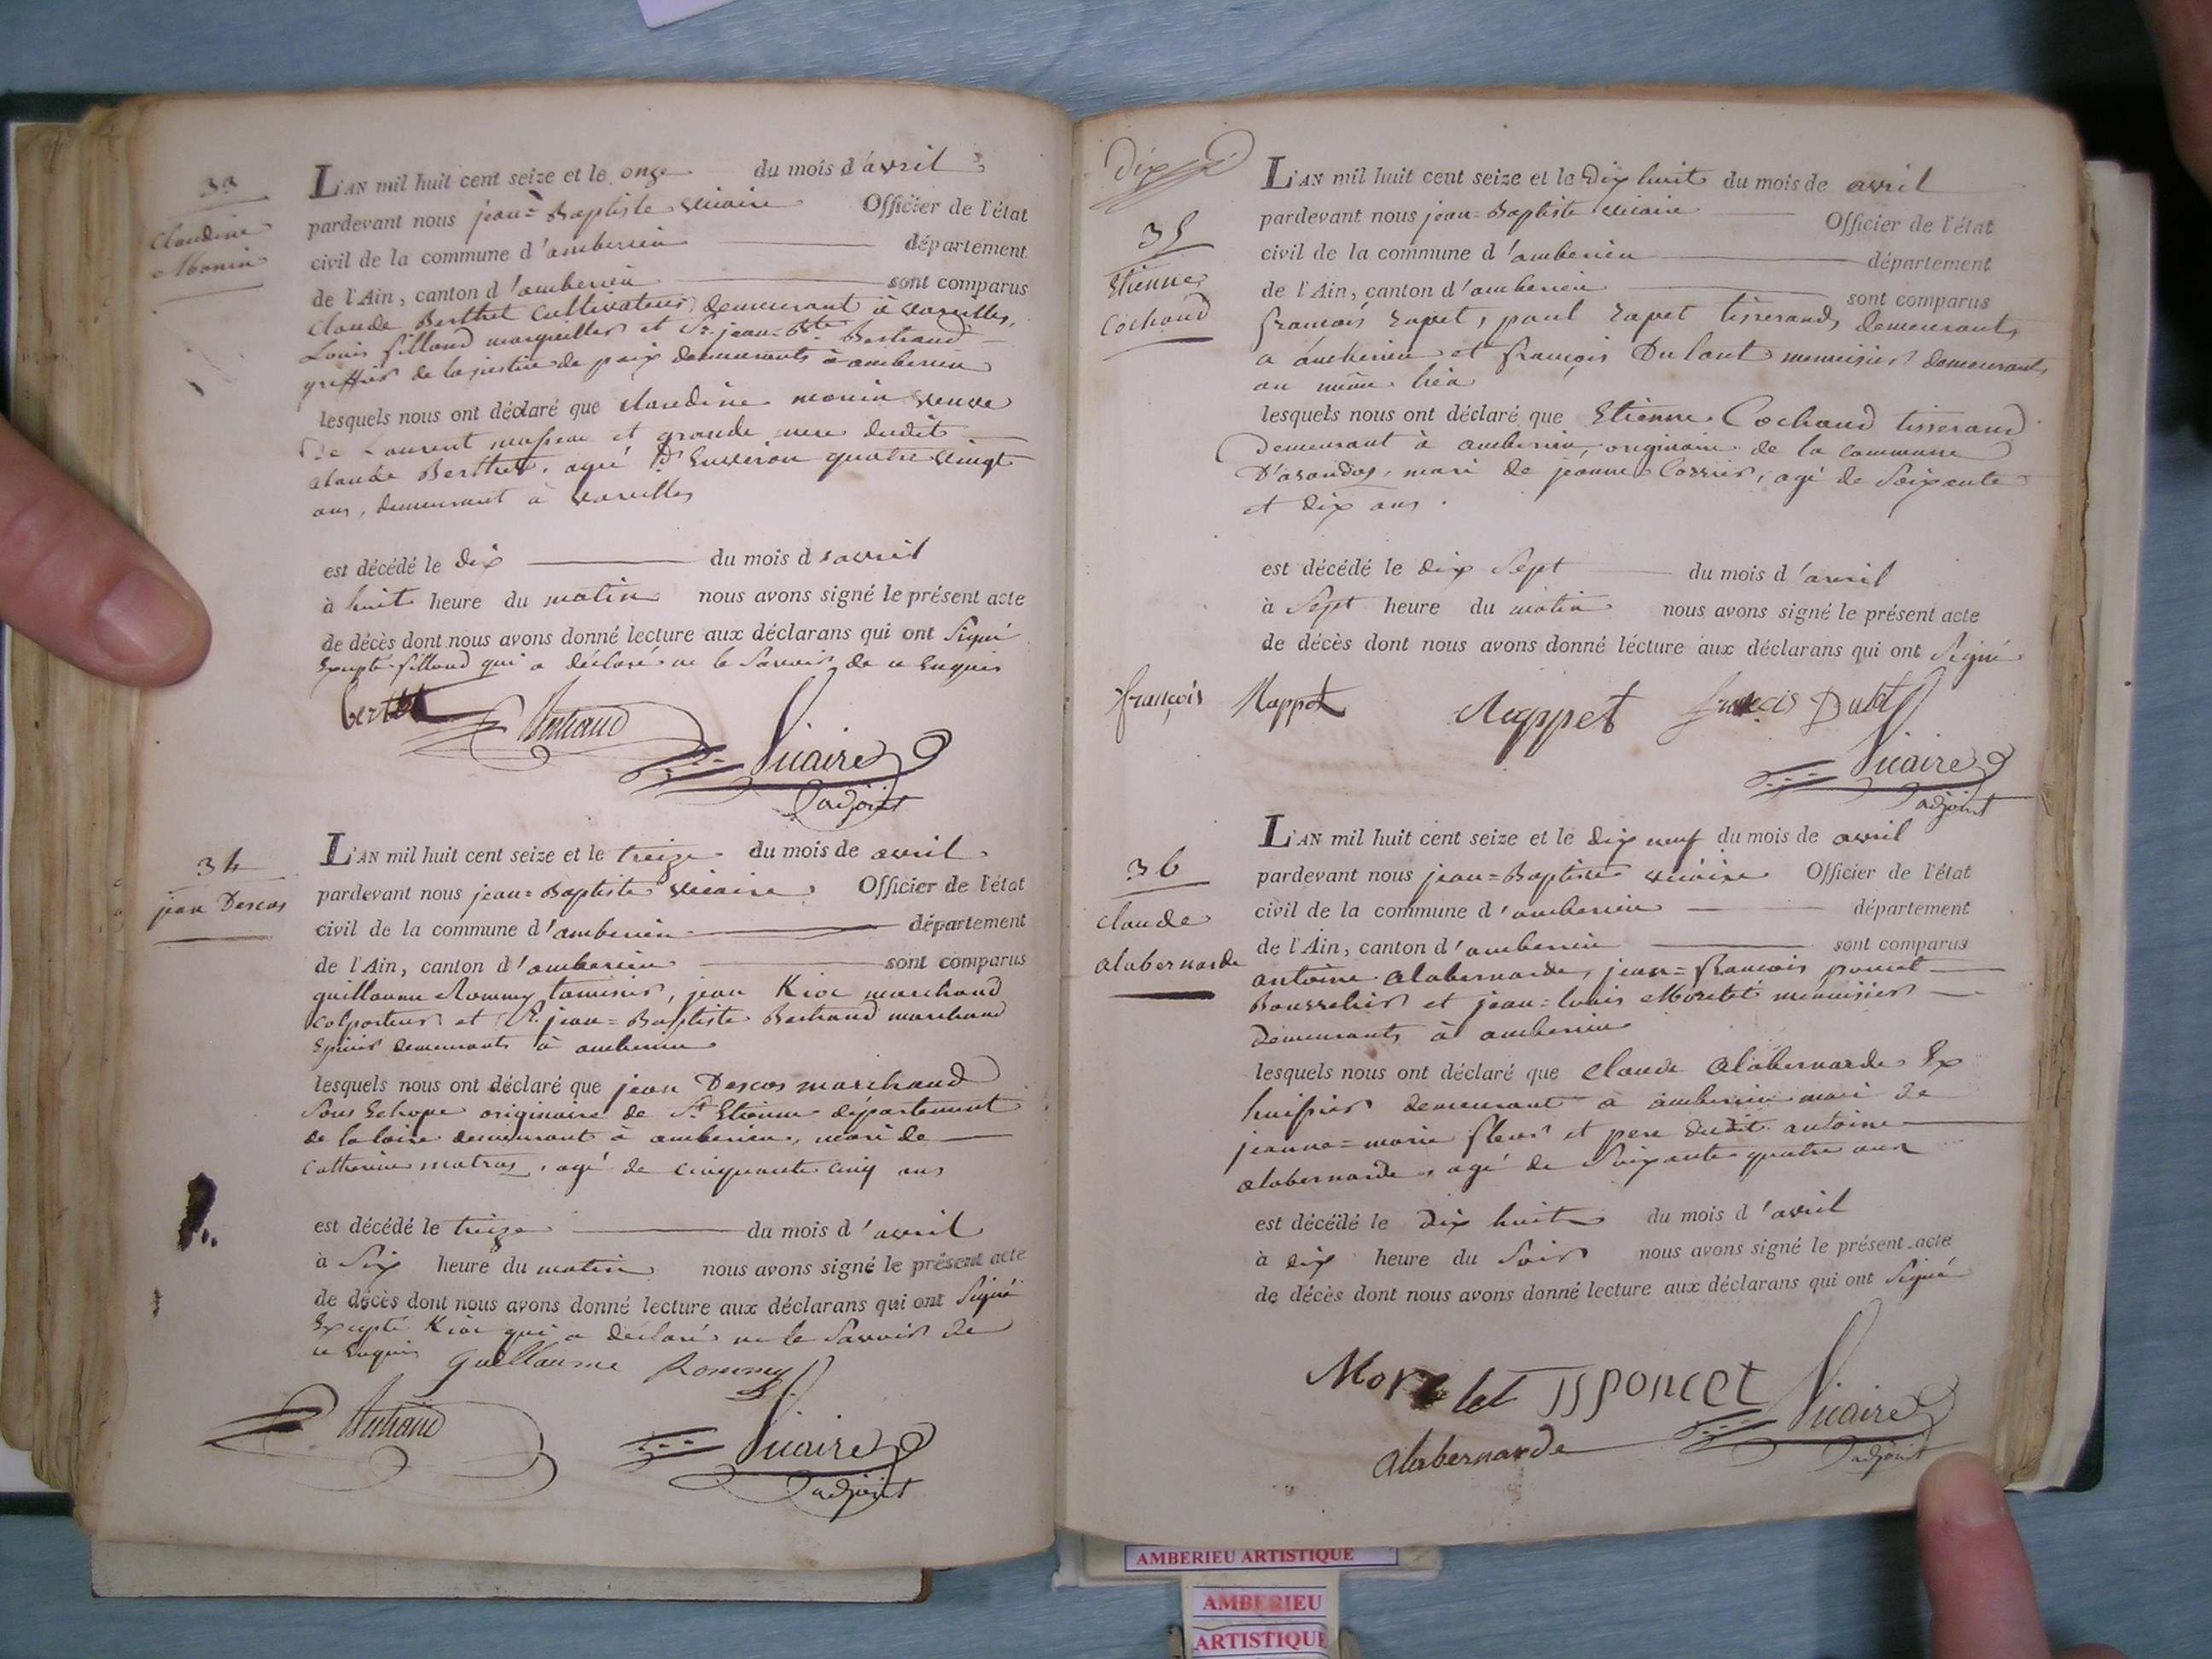 33
Claudine
Monin
L'AN mil huit cent seize et le onze du mois d'avril
pardevant nous jean=Baptiste vicaire Officier de l'état
civil de la commune d'amberieu département
de l'Ain, canton d'amberieu sont comparus
Claude Berthet Cultivateur demeurant à vareilles,
Louis filloud marguiller et Sr. jean-Bte Bertrand
greffier de la justice de paix demeurants à amberieu
lesquels nous ont déclaré que claudine monin veuve
De Laurent et grande mere dudit
claude Berthet, agé d'Environ quatre vingt
ans, demeurant à vareilles
est décédé le dix du mois d'avril
à huit heure du matin nous avons signé le présent acte
de décès dont nous avons donné lecture aux déclarans qui ont Signé
Excepté filloud qui a déclaré ne le Savoir de ce Enquis
bertet Bertrand Vicaire
adjoint
34
jean Descos
L'AN mil huit cent seize et le treize du mois de avril
pardevant nous jean=Baptiste vicaire Officier de l'état
civil de la commune d'amberieu département
de l'Ain, canton d'amberieu sont comparus
guillaume Rommy tamisier, jean Kioc marchand
Colporteur et Sr. jean=Baptiste Bertrand marchand
Epicier demeurants à amberieu
lesquels nous ont déclaré que jean Descos marchand
Sous Echope originaire de St Etienne département
de la loire demeurant à amberieu, mari de
Catherine matras, agé de cinquante cinq ans
est décédé le treize du mois d'avril
à Six heure du matin nous avons signé le présent acte
de décès dont nous avons donné lecture aux déclarans qui ont Signé
Excepté Kioc qui a déclaré ne le Savoir de
ce Enquis Guillaume Rommy
Bertrand Vicaire
adjoint
Dix
35
Etienne
Cochaud
L'AN mil huit cent seize et le Dix huit du mois de avril
pardevant nous jean=Baptiste vicaire Officier de l'état
civil de la commune d'amberieu département
de l'Ain, canton d'amberieu sont comparus
francois rapet, paul rapet tisserands demeurants
a amberieu et françois Dulaut menuisier demeurant
au même lieu
lesquels nous ont déclaré que Etienne Cochaud tisserand
Demeurant à amberieu, originaire de la commune
D'arandas, mari de jeanne Corrier, agé de Soixante
et dix ans.
est décédé le dix Sept du mois d'avril
à Sept heure du matin nous avons signé le présent acte
de décès dont nous avons donné lécture aux déclarans qui ont Signé
françois Rappet Rappet Vicaire
adjoint
36
claude
alabernarde
L'AN mil huit cent seize et le dix neuf du mois de avril
pardevant nous jean=Baptiste vicaire Officier de l'état
civil de la commune d'amberieu département
de l'Ain, canton d'amberieu sont comparus
antoine alabernarde, jean=francois poncet
Bourrelier et jean=louis Morelet menuisier
Demeurants à amberieu
lesquels nous ont déclaré que claude alabernarde Ex
huissier demeurant à amberieu mari de
jeanne=marie fleur et pere dudit antoine
alabernarde, agé de Soixante quatre ans
est décédé le dix huit du mois d'avril
à dix heure du Soir nous avons signé le présent acte
de décès dont nous avons donné lecture aux déclarans qui ont Signé
Morelet JJ poncet Vicaire
alabernarde adjoint
AMBERIEU ARTISTIQUE
AMBERIEU
ARTISTIQUE